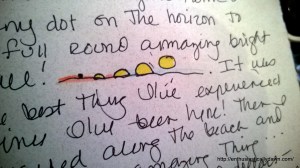 ny dot on the horizon to
full Round amazing bright
It was
best thing I've experienced
I've been here! Then I
along the beach and
amazing Thing